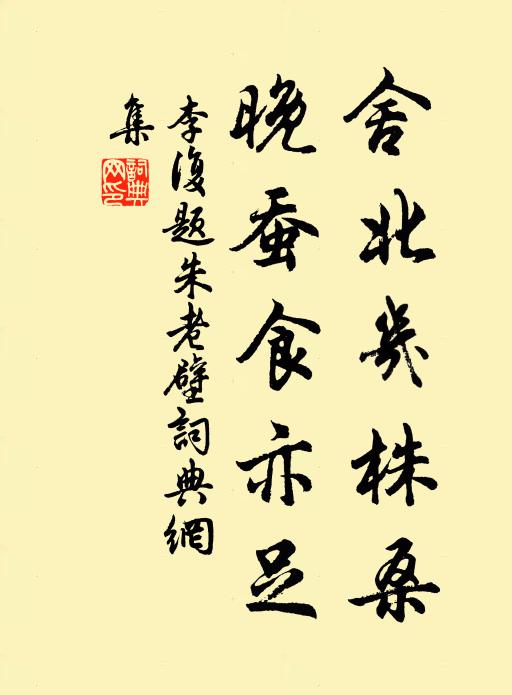 舍北幾株桑
晚蚕食亦足
李復题朱老壁詞典網
集
詞典
网印